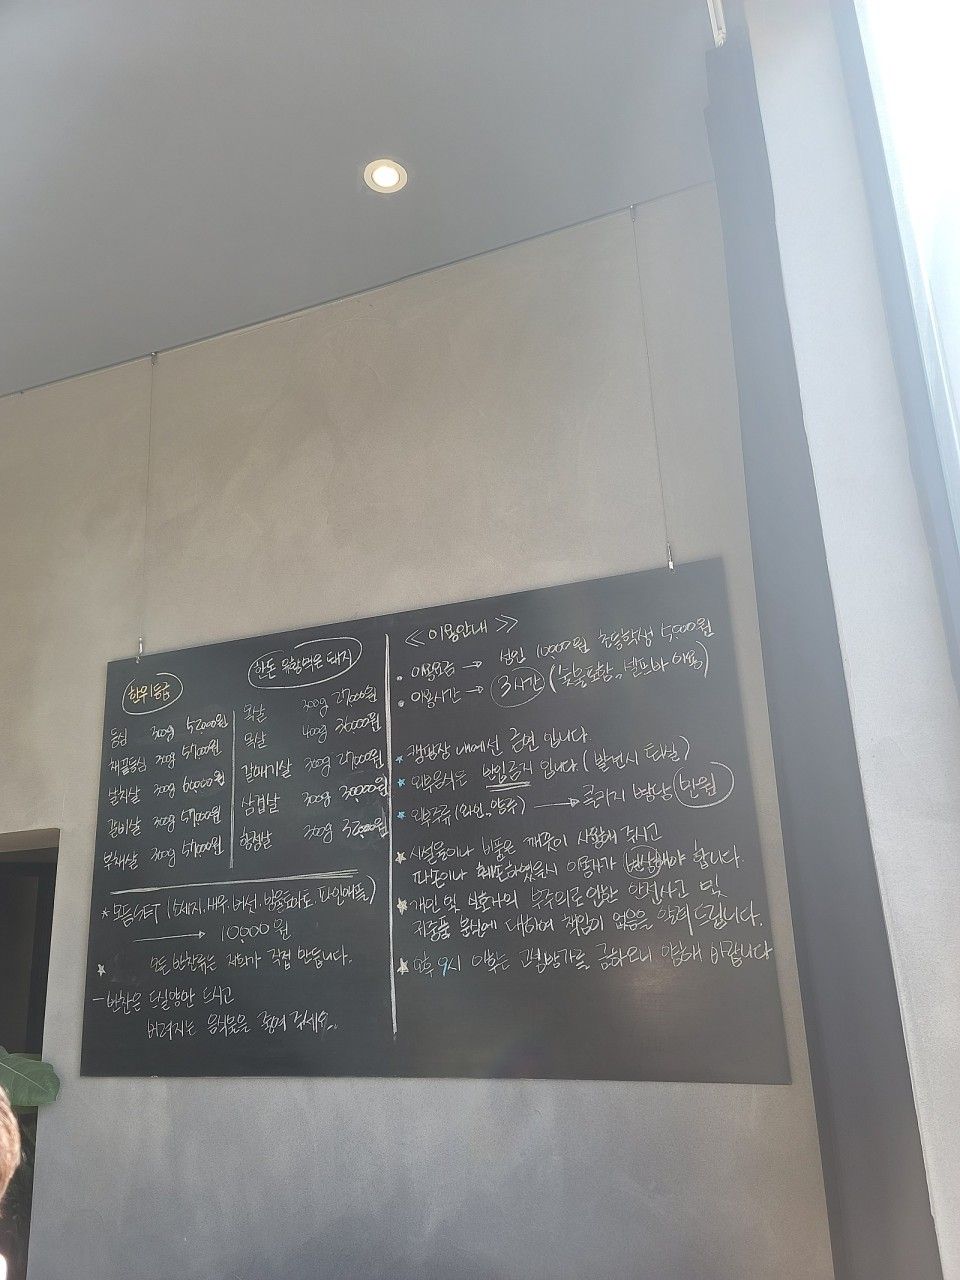 한우암소
등심 300g 52000원
채끝등심 300g 57000원
살치살 300g 60000원
갈비살 300g 57000원
부채살 300g 57,000원
한돈 유황먹은 돼지
목살 300g 27000원
목살 400g 36000원
갈매기살 300g 27000원
삼겹살 300g 30,000원
항정살 300g 32000원
★ 모듬SET (소세지, 새우, 버섯, 방울토마토, 파인애플)
→ 10,000원
★ 모든 반찬류는 저희가 직접 만듭니다.
- 반찬은 드실양만 드시고
버려지는 음식물을 줄여 주세요..
≪ 이용안내 ≫
• 이용요금 → 성인 10,000원 초등학생 5,000원
• 이용시간 → 3시간 (숯불포함, 셀프바 이용)
★ 캠핑장 내에선 금연 입니다.
★ 외부음식는 반입금지 입니다. (발견시 퇴실)
★ 외부주류 (와인, 양주) → 콜키지 병당 만원
★ 시설물이나 비품은 깨끗이 사용해 주시고
파손이나 훼손하였을시 이용자가 변상해야 합니다.
★ 개인 및 보호자의 부주의로 인한 안전사고 및
귀중품 분실에 대하여 책임이 없음을 알려 드립니다.
★ 오후 9시 이후는 고성방가를 금하오니 양해 바랍니다